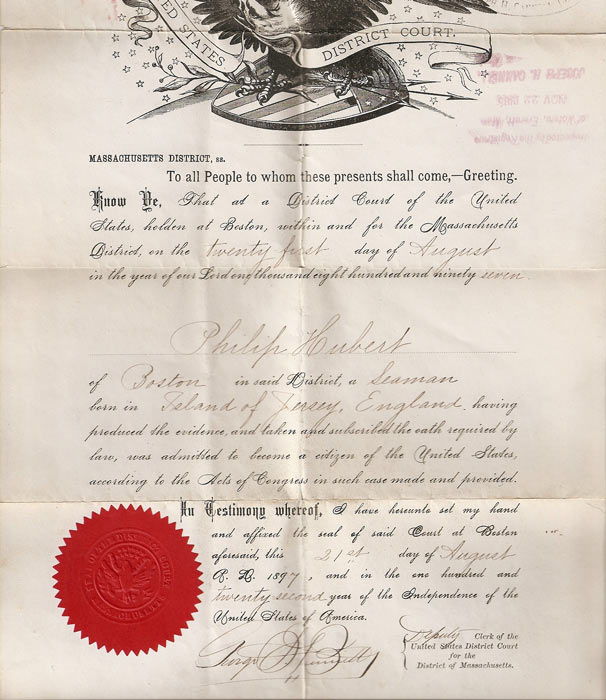 UNITED STATES DISTRICT COURT.
JOSEPH H. CANNE
NOV 22
MASSACHUSETTS DISTRICT, ss.
To all People to whom these presents shall come,—Greeting.
Know Ye, That at a District Court of the United
States, holden at Boston, within and for the Massachusetts
District, on the twenty first day of August
in the year of our Lord one thousand eight hundred and ninety seven
Philip Hubert
of Boston in said District, a Seaman
born in Island of Jersey, England, having
produced the evidence, and taken and subscribed the oath required by
law, was admitted to become a citizen of the United States,
according to the Acts of Congress in such case made and provided.
In Testimony whereof, I have hereunto set my hand
and affixed the seal of said Court at Boston
aforesaid, this 21st day of August
A. D. 1897, and in the one hundred and
twenty second year of the Independence of the
United States of America.
Deputy Clerk of the
United States District Court
for the
District of Massachusetts.